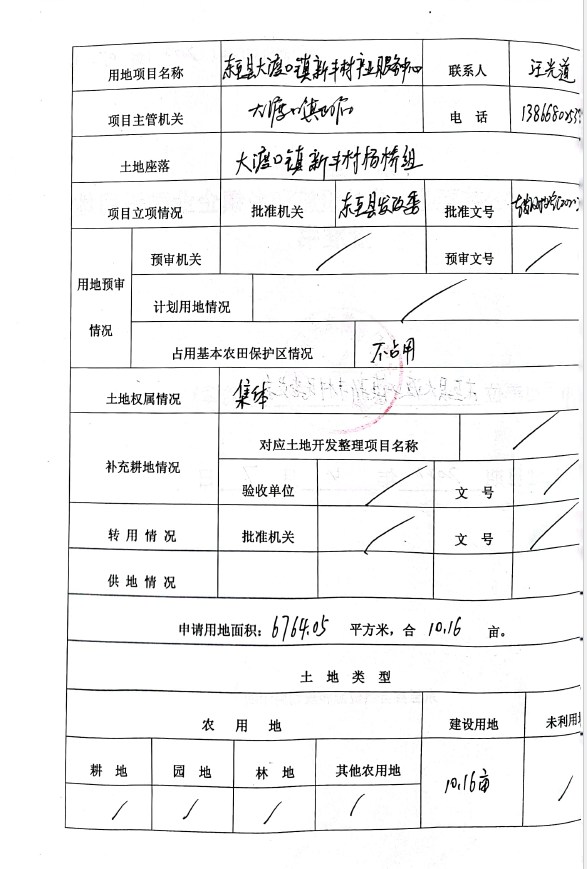 用地项目名称 东至县大渡口镇新丰村产业服务中心 联系人 汪光道
项目主管机关 大渡口镇政府 电 话 1386680253
土地座落 大渡口镇新丰村杨桥组
项目立项情况 批准机关 东至县发改委 批准文号
预审机关 / 预审文号 /
用地预审
计划用地情况 /
情况
占用基本农田保护区情况 不占用
土地权属情况 集体
对应土地开发整理项目名称 /
补充耕地情况
验收单位 / 文 号 /
转 用 情 况 批准机关 / 文 号 /
供 地 情 况
申请用地面积：6764.05 平方米，合 10.16 亩。
土 地 类 型
农 用 地 建设用地 未利用
耕 地 园 地 林 地 其他农用地 10.16亩 /
/ / / /